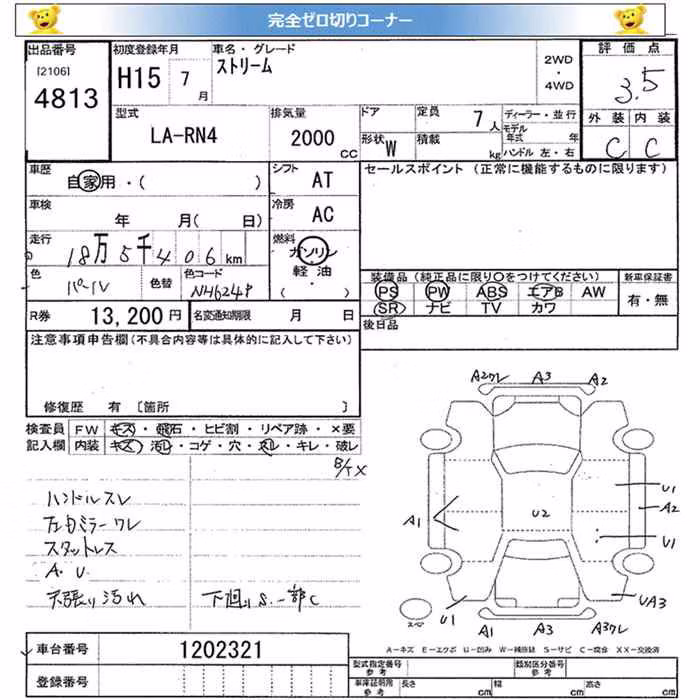 完全ゼロ切りコーナー
出品番号
[2106]
4813
初度登録年月
H15 7 月
車名・グレード
ストリーム
2WD
・
4WD
評価点
3.5
外装 内装
C C
型式
LA-RN4
排気量
2000 CC
ドア
定員
7人
形状
W
積載
kg
ディーラー・並行
モデル年式 年
ハンドル 左・右
車歴
自家用・( )
シフト
AT
セールスポイント (正常に機能するものに限ります)
車検
年 月( 日)
冷房
AC
走行
18万5千406km
燃料
ガソリン
軽油
・
( )
色
パール
色替
色コード
NH624P
装備品 (純正品に限り○をつけてください)
新車保証書
PS PW ABS エアB AW
SR ナビ TV カワ
有・無
R券
13,200円
名変通知期限
月 日
後日品
注意事項申告欄(不具合内容等は具体的に記入して下さい)
修復歴 有 [箇所 ]
検査員 FW キズ・飛石・ヒビ割・リペア跡・×要
記入欄 内装 キズ・汚レ・コゲ・穴・スレ・キレ・破レ
ハンドルスレ
左右ミラーワレ
スタットレス
A.U.
天張り汚れ
下廻りS.一部C
A2ワレ A3 A2
U1
A2
A1 U2
U1
スペア
U1 A1 A3 A3ワレ UA3
A-キズ E-エクボ U-凹み W-補修跡 S-サビ C-腐食 XX-交換済
車台番号
1202321
登録番号
型式指定番号
参考
類別区分番号
参考
車庫証明用
参考
長さ cm
幅 cm
高さ cm